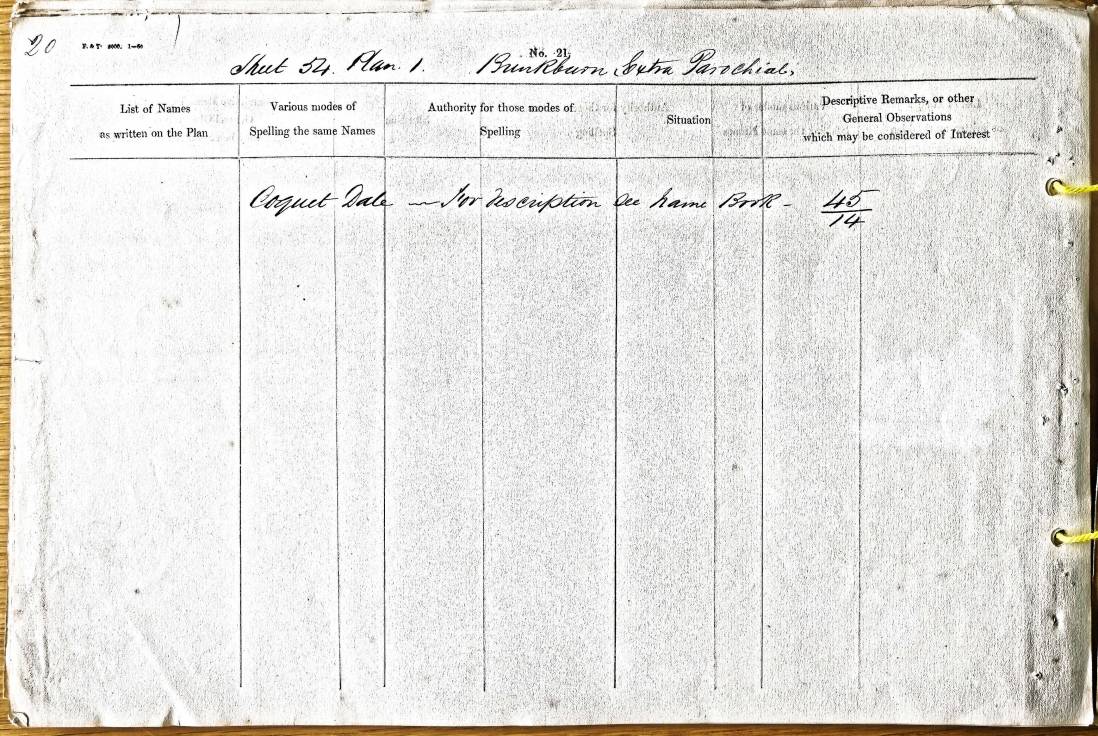 20
F. & T. 2000. 1—60
No. 21.
Sheet 54. Plan. 1. Brinkburn Extra Parochial.
List of Names
as written on the Plan
Various modes of
Spelling the same Names
Authority for those modes of
Spelling
Situation
Descriptive Remarks, or other
General Observations
which may be considered of Interest
Coquet Dale — For description See Name Book – 45
14